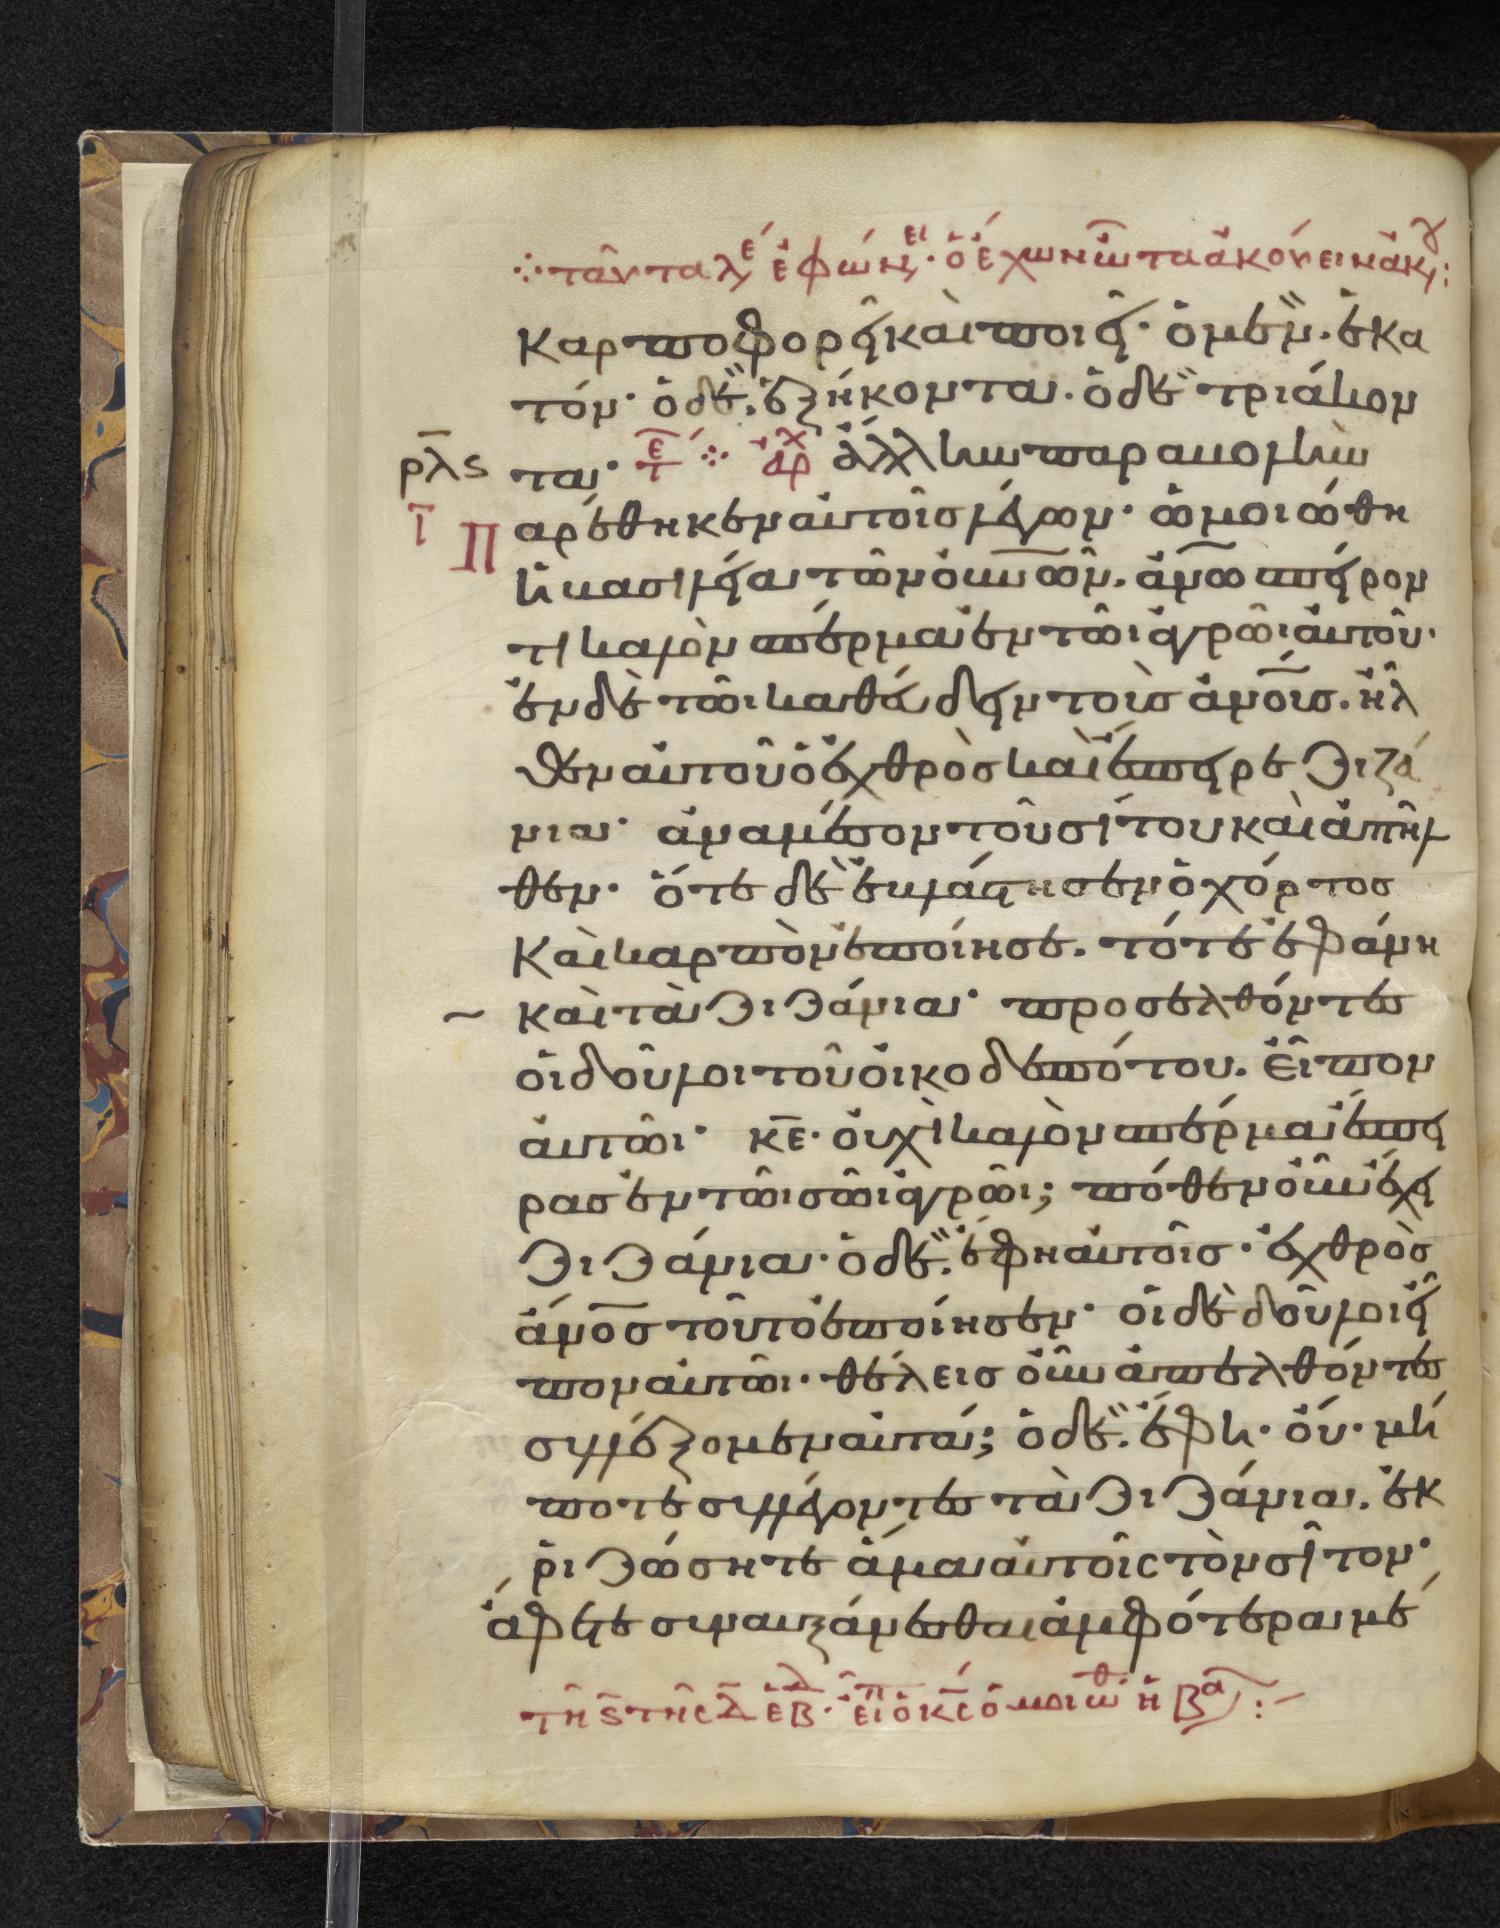 ⁘ ταῦντα λγ ἐφών· ὁ ἔχων ὦτα ἀκούειν ἀκ:
καρποφορεῖ καὶ ποιεῖ· ὁ μὲν. ἑκα
τόν· ὁ δὲ. ἑξήκοντα. ὁ δὲ τριάκον
ρλς τα· τε ⁘ ἀρχ ἄλλην παραβολὴν
ι Παρέθηκεν αὐτοῖς λέγων· ὡμοιώθη
ἡ βασιλεία τῶν οὐνῶν. ἀνω σπείρον
τι καλὸν σπέρμα ἐν τῶι ἀγρῶι αὐτοῦ·
ἐν δὲ τῶι καθεύδειν τοὺς ἀνους. ἦλ
θεν αὐτοῦ ὁ ἐχθρὸς καὶ ἔσπειρε ζιζά
νια· ἀναμέσον τοῦ σίτου καὶ ἀπῆλ
θεν· ὅτε δὲ ἐβλάστησεν ὁ χόρτος
καὶ καρπὸν ἐποίησε. τότε ἐφάνη
~ καὶ τὰ ζιζάνια· προσελθόντες
οἱ δοῦλοι τοῦ οἰκοδεσπότου. εἶπον
αὐτῶι· κε· οὐχὶ καλὸν σπέρμα ἔσπει
ρας ἐν τῶι σῶι ἀγρῶι; πόθεν οὖν ἔχει
ζιζάνια· ὁ δὲ. ἔφη αὐτοῖς· ἐχθρὸς
ἄνος τοῦτο ἐποίησεν· οἱ δὲ δοῦλοι εἶ
πον αὐτῶι· θέλεις οὖν ἀπελθόντες
συλλέξομεν αὐτά; ὁ δὲ. ἔφη· οὐ· μή
ποτε συλλέγοντες τὰ ζιζάνια. ἐκ
ριζώσητε ἅμα αὐτοῖς τὸν σῖτον·
ἄφετε συναυξάνεσθαι ἀμφότερα μέ
τῆ ς τῆς λ ἑβ· εἶπ ὁ κς ὁμοιώθ ἡ βα:-